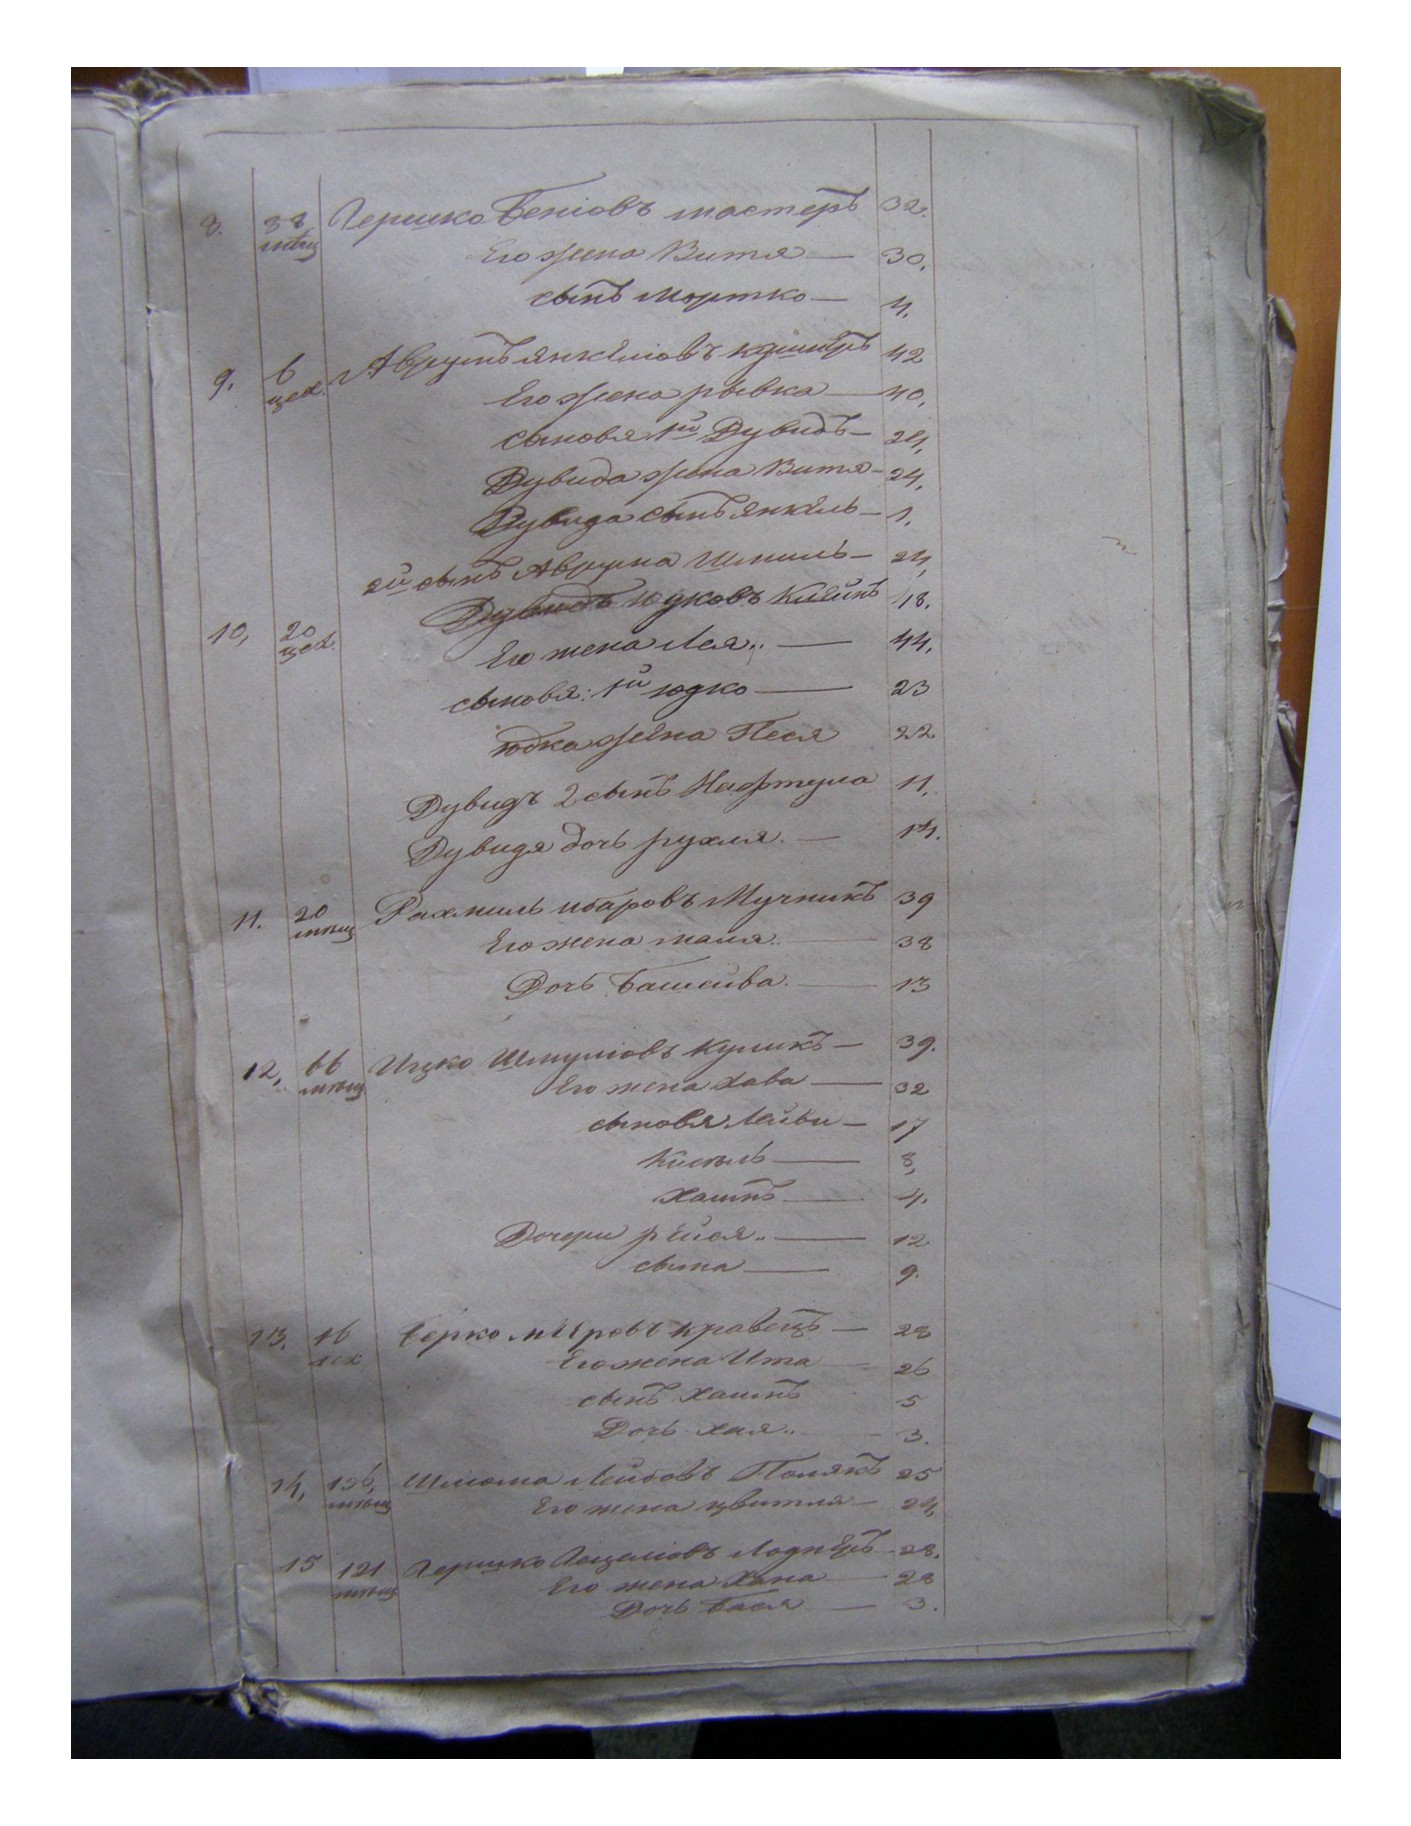 8. 38 мѣщ Гершко Беніовъ мастеръ 32.
Его жена Витя — 30,
сынъ Мортко — 4,
9, 6 цех. Аврумъ Янкеліовъ кушнѣръ 42
Его жена рывка — 40,
сыновя 1й Дувидъ — 24,
Дувида жена Витя — 24,
Дувида сынъ Янкель — 1.
2й сынъ Аврума Шмиль — 24,
10, 20 цех. Дувидъ Юдковъ 48,
Его жена Лея.. — 44,
сыновя: 1й юдко — 23
юдка жена Песя 22
Дувидъ 2 сынъ Нафтула 11,
Дувидя дочь рухля. — 14.
11. 20 мѣщ Рахмиль Мучникъ 39
Его жена маля.. — 38
Дочь Башейва. — 13
12, 66 мѣщ Ицко Шмуліовъ Куликъ — 39.
Его жена Хава — 32
сыновя Лейби — 17
Кисель — 8,
Хаимъ — 4.
Дочери рейся.. — 12
сыма — 9.
13. 16 цех Берко кравецъ — 28
Его жена Ита — 26
сынъ Хаимъ 5
Дочь хая.. — 3.
14, 156, мѣщ Шлиома Лейбовъ Полякъ 25
Его жена цвитля — 24,
15 121 мѣщ Гершко Лоднеръ — 28.
Его жена Хана — 28
Дочь Бася — 3.